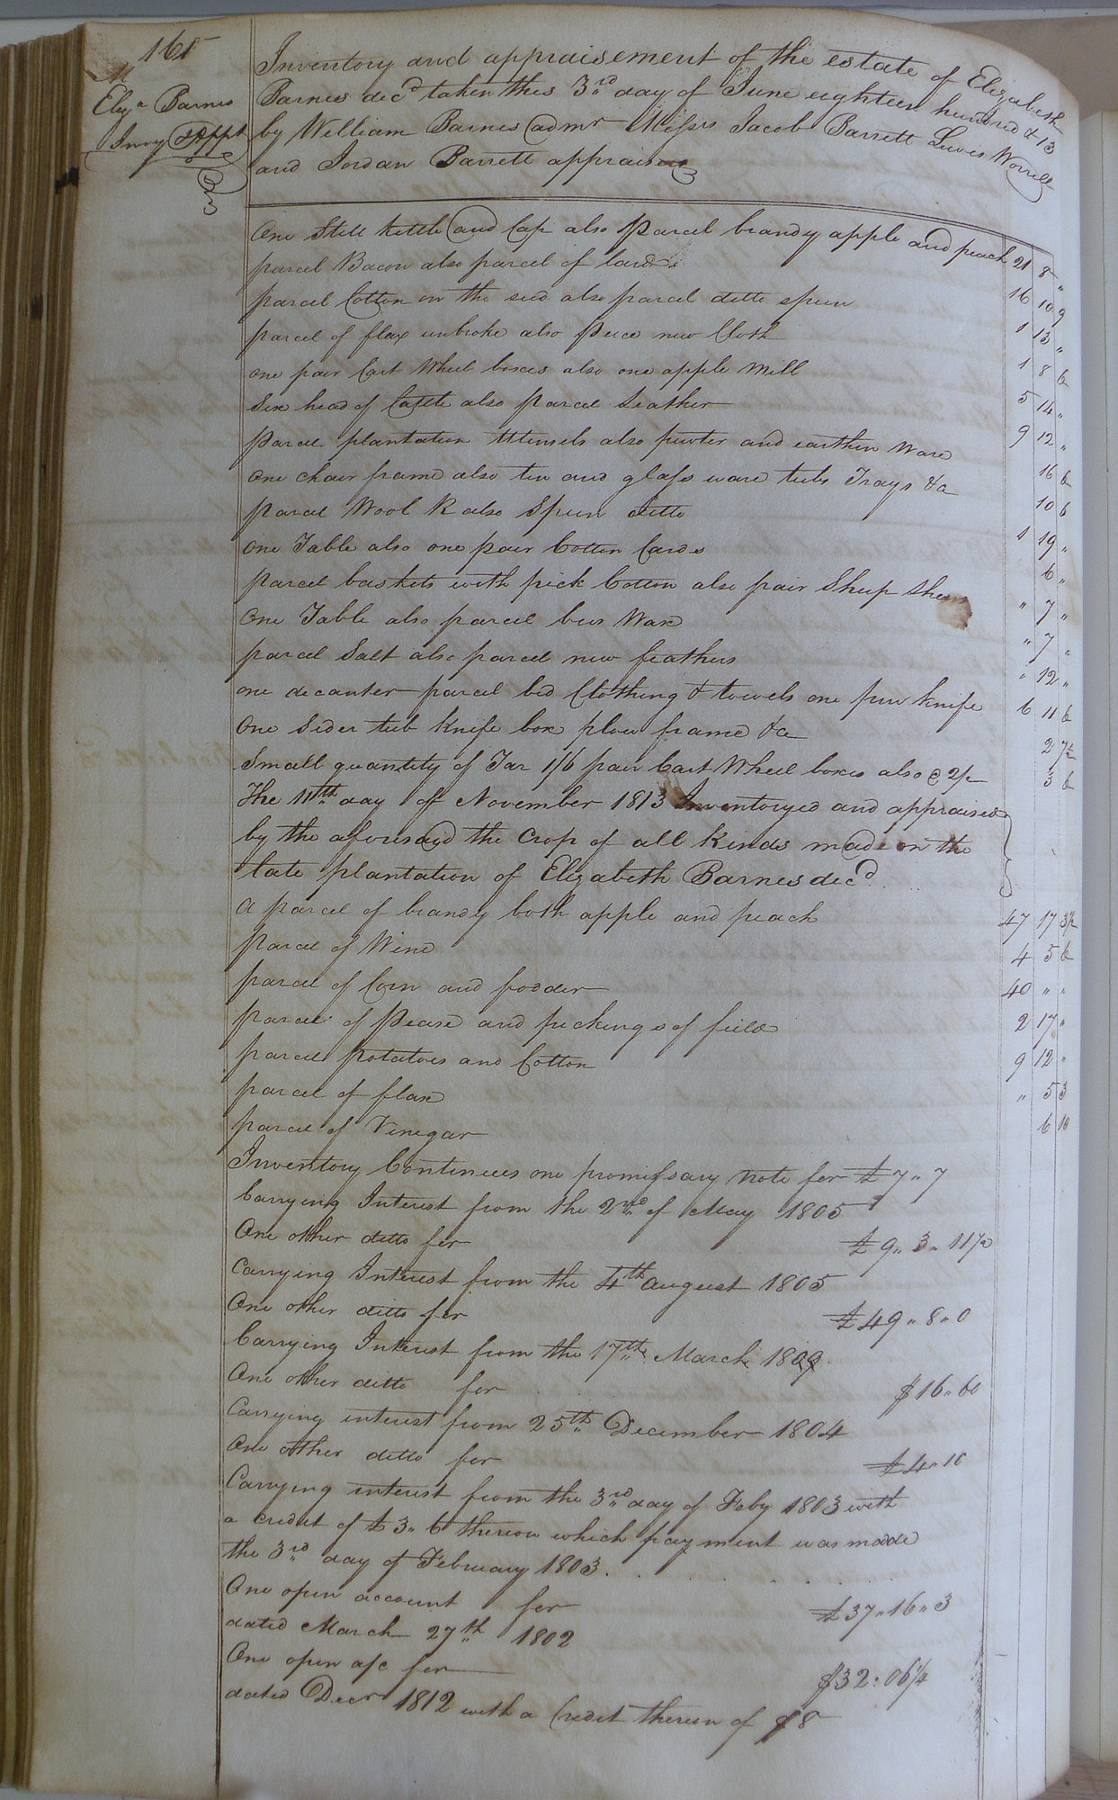 165
Eliza Barnes
Invy & Appt
Inventory and appraisement of the estate of Elizabeth
Barnes decd taken this 3rd day of June eighteen hundred & 13
by William Barnes admr Messrs Jacob Barrett Lewis Worrell
and Jordan Barrett appraisers
One Still kettle and Cap also parcel brandy apple and peach 21 8 "
parcel Bacon also parcel of lard 16 10 9
parcel Cotton in the seed also parcel ditto spun 1 13 "
parcel of flax unbroke also peice new Cloth 1 8 6
one pair Cart Wheel boxes also one apple mill 5 14 "
Six head of Cattle also parcel Leather 9 12 "
parcel plantation Utensels also pewter and earthen Ware 16 6
One chair frame also tin and glass ware tubs Trays &c 10 6
parcel Wool R also Spun ditto 1 19 "
One Table also one pair Cotton Cards 6 "
parcel baskets with pick Cotton also pair Sheep Shears " 7 "
One Table also parcel bees Wax " 7 "
parcel Salt also parcel new feathers " 12 "
one decanter parcel bed Clothing & towels one pen knife 6 11 6
One Sider tub knife box plow frame &c 2 7½
Small quantity of Tar 1/6 pair Cart Wheel boxes also @ 2/ 3 6
The 11th day of November 1813 Inventoryed and appraised
by the aforesaid the Crop of all kinds made on the
late plantation of Elizabeth Barnes decd
A parcel of brandy both apple and peach 47 17 3½
parcel of Wine 4 5 6
parcel of Corn and fodder 40 " "
parcel of Pease and pickings of field 2 17 "
parcel potatoes and Cotton 9 12 "
parcel of flax " 5 3
parcel of Vinegar 6 10
Inventory Continues one promissary note for £7 " 7
Carrying Interest from the 2nd of May 1805
One other ditto for £9 " 3 " 11½
Carrying Interest from the 4th august 1805
One other ditto for £49 " 8 " 0
Carrying Interest from the 17th March 1809
One other ditto for $16 " 60
Carrying interest from 25th December 1804
One other ditto for £4 " 10
Carrying interest from the 3rd day of Feby 1803 with
a credit of £3 " 6 thereon which payment was made
the 3rd day of February 1803.
One open account for £37 " 16 " 3
dated March 27th 1802
One open a/c for $32 : 06¼
dated Decr 1812 with a Credit thereon of $8